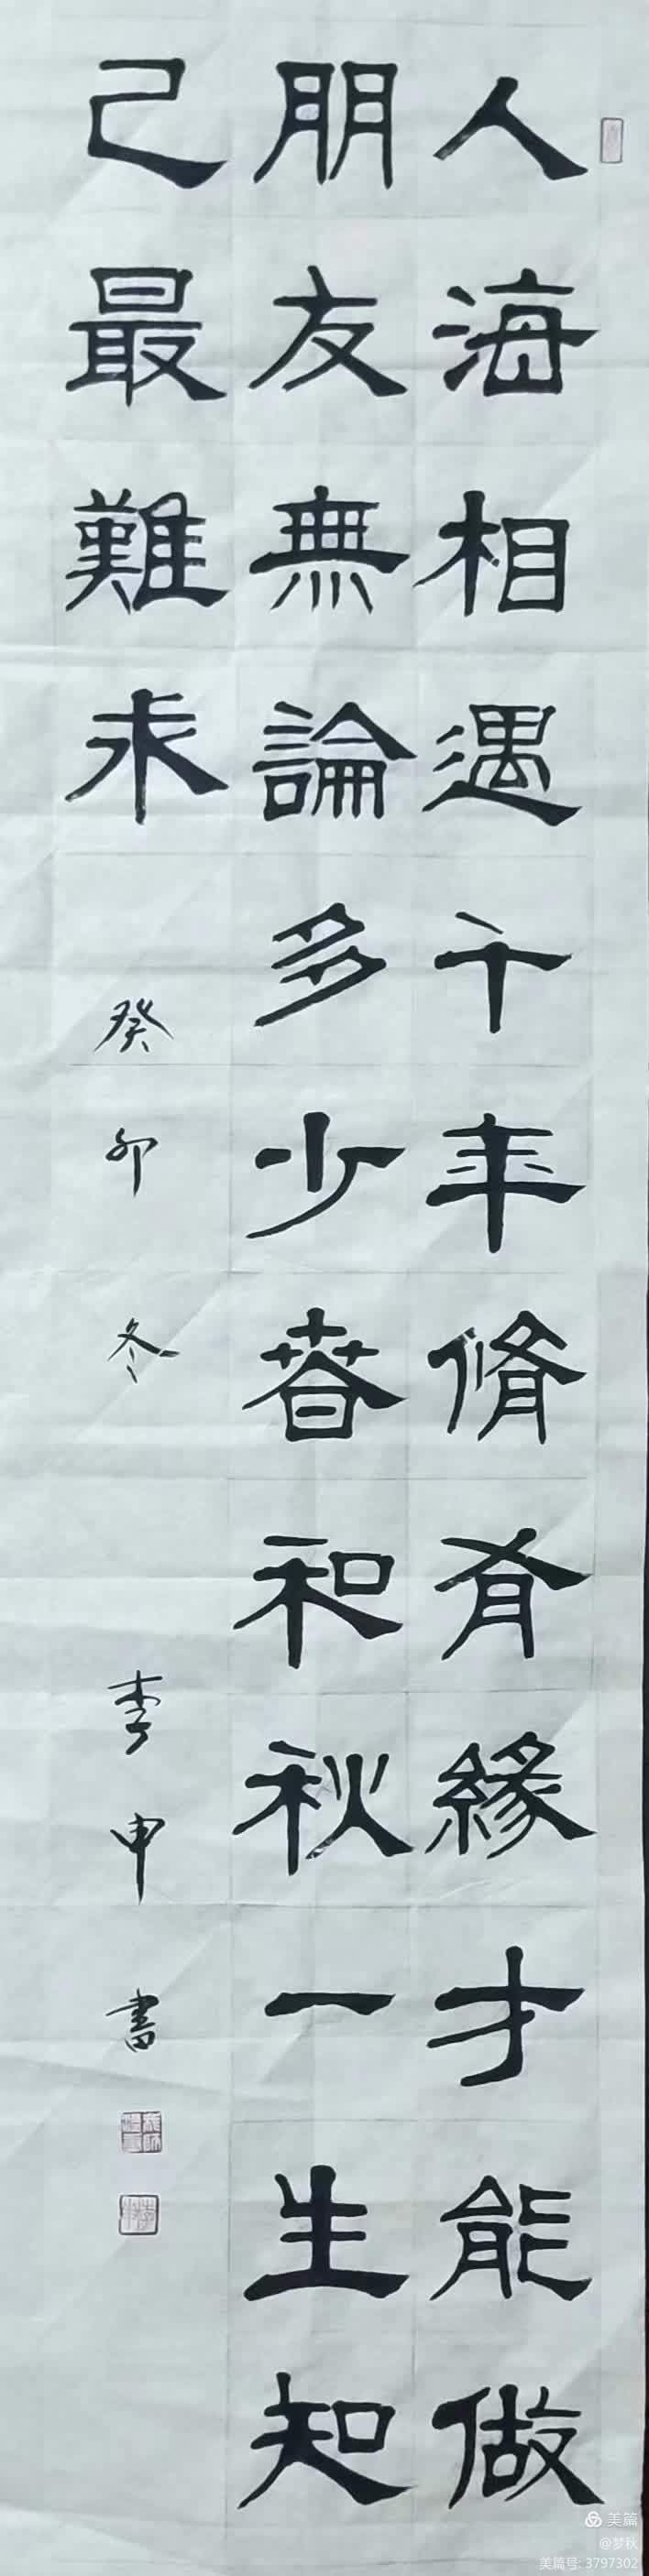 人海相遇千年脩有緣才能做
朋友無論多少春和秋一生知
己最難求
癸卯冬 李申書
美篇
@梦秋
美篇号: 3797302